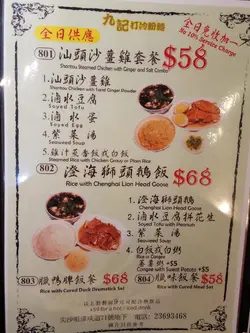 九記打冷粉麵
全日供應
全日免收加一
No 10% Service Charge
801 汕頭沙薑雞套餐 $58
Shantou Steamed Chicken with Ginger and Salt Combo
1. 汕頭沙薑雞
Shantou Chicken with Twist Ginger Powder
2. 滷水豆腐
Soyed Tofu
3. 滷水蛋
Soyed Egg
4. 紫菜湯
Seaweed Soup
5. 雞汁菜香飯或白飯
Steamed Rice with Chicken Gravy or Plain Rice
802 澄海獅頭鵝飯 $68
Rice with Chenghai Lion Head Goose
1. 澄海獅頭鵝
Chenghai Lion Head Goose
2. 滷水豆腐拼花生
Soyed Tofu with Peanut
3. 紫菜湯
Seaweed Soup
4. 白飯或白粥
Rice or Congee
蕃薯粥 +$5
Congee with Sweet Potato +$5
803 臘鴨髀飯餐 $68
Rice with Cured Duck Drumstick Set
804 臘味飯餐 $58
Rice with Cured Meat Set
以上套餐
+$8 for hot / cold drink
電話 23693468